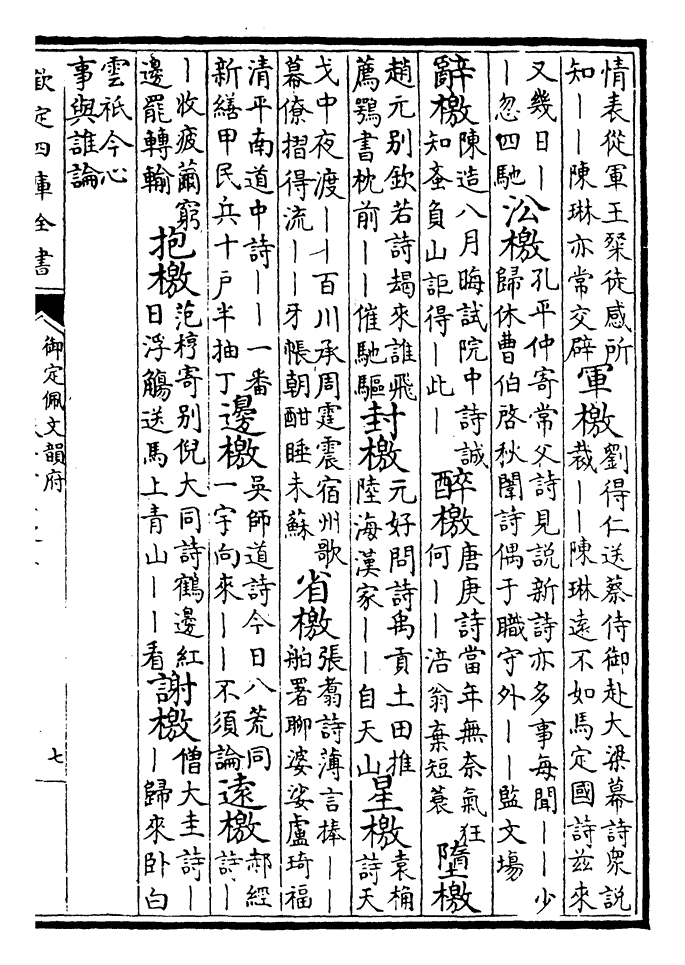 情表從軍王粲徒感所
知——陳琳亦常交辟
軍檄
劉得仁送蔡侍御赴大梁幕詩衆說
裁——陳琳遠不如馬定國詩茲來
又幾日—
—忽四馳
㳂檄
孔平仲寄常父詩見說新詩亦多事每聞——少
歸休曹伯啓秋闈詩偶于職守外——監文場
辭檄
陳造八月晦試院中詩誠
知蚉負山詎得—此—
醉檄
唐庚詩當年無奈氣狂
何——涪翁棄短蓑
墮檄
趙元別欽若詩朅來誰飛
薦鶚書枕前——催馳驅
封檄
元好問詩禹貢土田推
陸海漢家——自天山
星檄
袁桷
詩天
戈中夜渡——百川承周霆震宿州歌
幕僚摺得流——牙帳朝酣睡未蘇
省檄
張翥詩薄言捧——
舶署聊婆娑盧琦福
清平南道中詩——一番
新繕甲民兵十戶半抽丁
邊檄
吳師道詩今日八荒同
一宇向來——不須論
遠檄
郝經
詩—
—收疲薾窮
邊罷轉輸
抱檄
范梈寄別倪大同詩鶴邊紅
日浮觴送馬上青山——看
謝檄
僧大圭詩—
—歸來卧白
雲祇今心
事與誰論
欽定四庫全書
御定佩文韻府
七